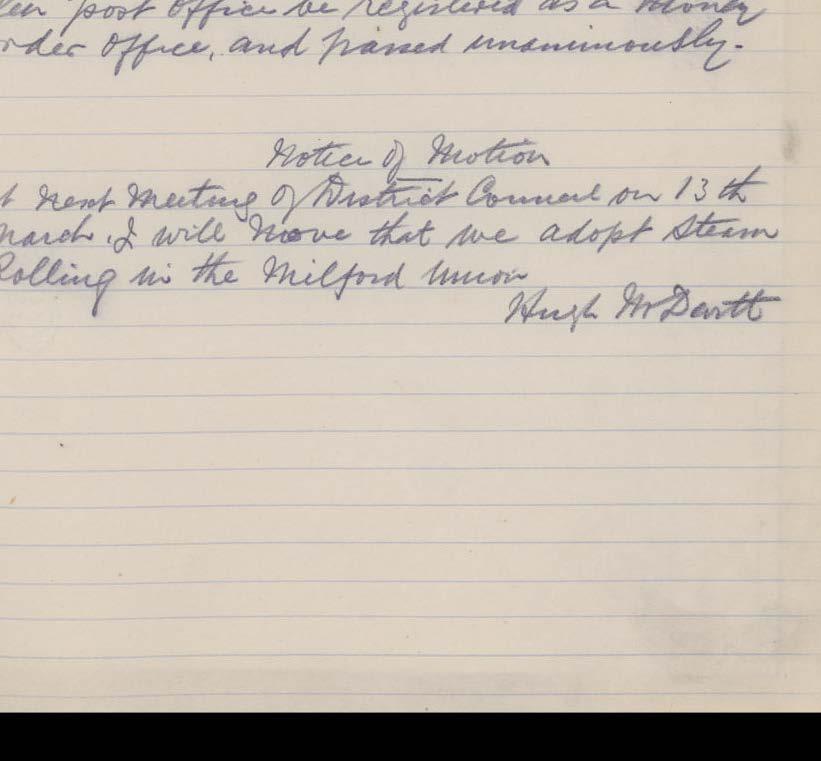 post office be registered as a Money
rder office, and passed unanimously.
Notice of Motion
t next Meeting of District Council on 13th
March, I will Move that we adopt Steam
Rolling in the Milford Union
Hugh McDevitt